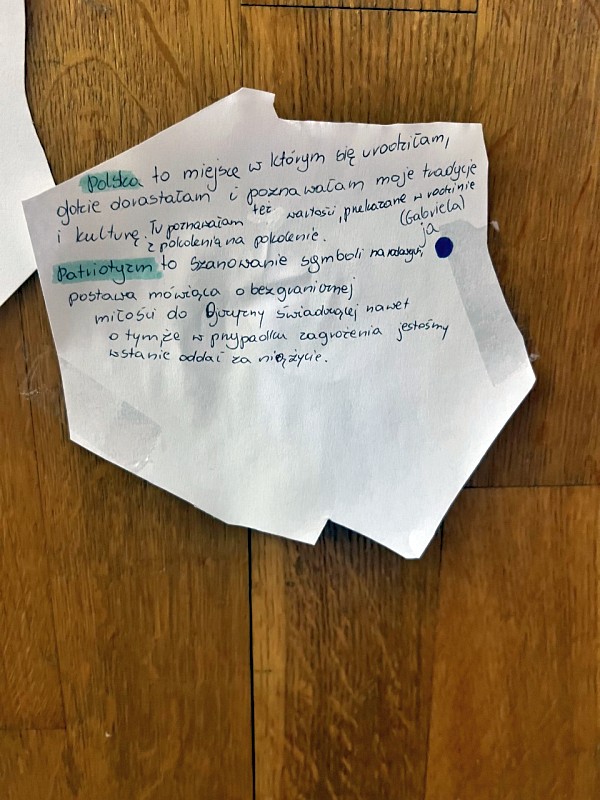 Polska to miejsce w którym się urodziłam,
gdzie dorastałam i poznawałam moje tradycje
i kulturę. Tu poznawałam też wartości, przekazane w rodzinie
z pokolenia na pokolenie. (Gabriela)
ja
Patriotyzm to szanowanie symboli narodowych,
postawa mówiąca o bezgranicznej
miłości do Ojczyzny świadczącej nawet
o tym że w przypadku zagrożenia jesteśmy
wstanie oddać za nią życie.